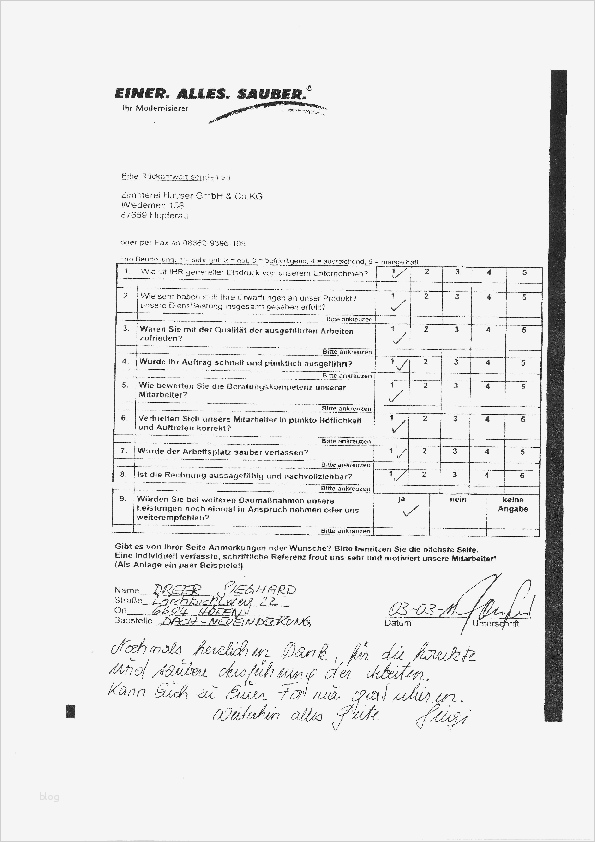 EINER. ALLES. SAUBER.®
Ihr Modernisierer
Bitte zurückantworten an
Zimmerei GmbH & Co KG
Wiedemen
87659 Hopferau
oder per Fax an 08362
1. Wie ist IHR genereller Eindruck von unserem Unternehmen? 1 2 3 4 5
2. Wie sehr haben sich Ihre Erwartungen an unser Produkt / 1 2 3 4 5
unsere Dienstleistung insgesamt gesehen erfüllt?
Bitte ankreuzen
3. Waren Sie mit der Qualität der ausgeführten Arbeiten 1 2 3 4 5
zufrieden?
Bitte ankreuzen
4. Wurde Ihr Auftrag schnell und pünktlich ausgeführt? 1 2 3 4 5
Bitte ankreuzen
5. Wie bewerten Sie die Beratungskompetenz unserer 1 2 3 4 5
Mitarbeiter?
Bitte ankreuzen
6. Verhielten sich unsere Mitarbeiter in punkto Höflichkeit 1 2 3 4 5
und Auftreten korrekt?
Bitte ankreuzen
7. Wurde der Arbeitsplatz sauber verlassen? 1 2 3 4 5
Bitte ankreuzen
8. Ist die Rechnung aussagefähig und nachvollziehbar? 1 2 3 4 5
Bitte ankreuzen
9. Würden Sie bei weiteren Baumaßnahmen unsere ja nein keine
Leistungen noch einmal in Anspruch nehmen oder uns Angabe
weiterempfehlen?
Bitte ankreuzen
Gibt es von Ihrer Seite Anmerkungen oder Wünsche? Bitte benützen Sie die nächste Seite.
Eine individuell verfasste, schriftliche Referenz freut uns sehr und motiviert unsere Mitarbeiter
(Als Anlage ein paar Beispiele!)
Name DREIER SIEGHARD
Straße 22
Ort 6604 HÖFEN
Baustelle DACH-NEUEINDECKUNG
03-03-11
Datum Unterschrift
Nochmals herzlichen Dank, für die korrekte
und saubere Ausführung der Arbeiten.
Kann Euch zu Eurer nur gratulieren.
Weiterhin alles Gute Sigi
blog